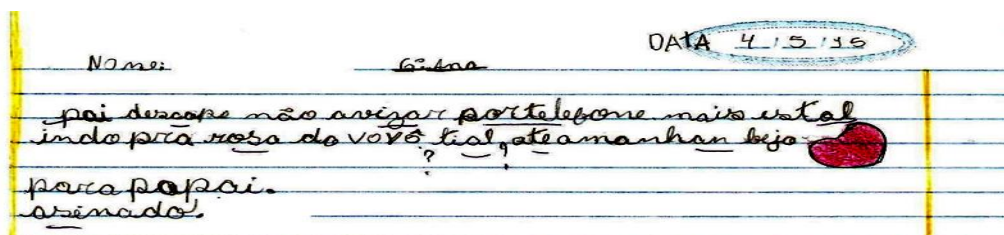 DATA 4/5/15
Nome: 6º Ano
pai descope não avizar portelefone mais estol
indo pra rosa do vovô tial, ateamanhan bejo
? ?
para papai.
asinado.